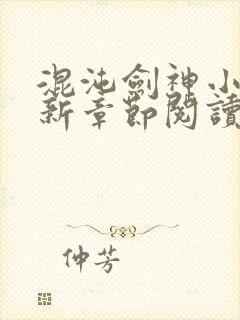 混沌劍神小
新章節閱讀
仲芳